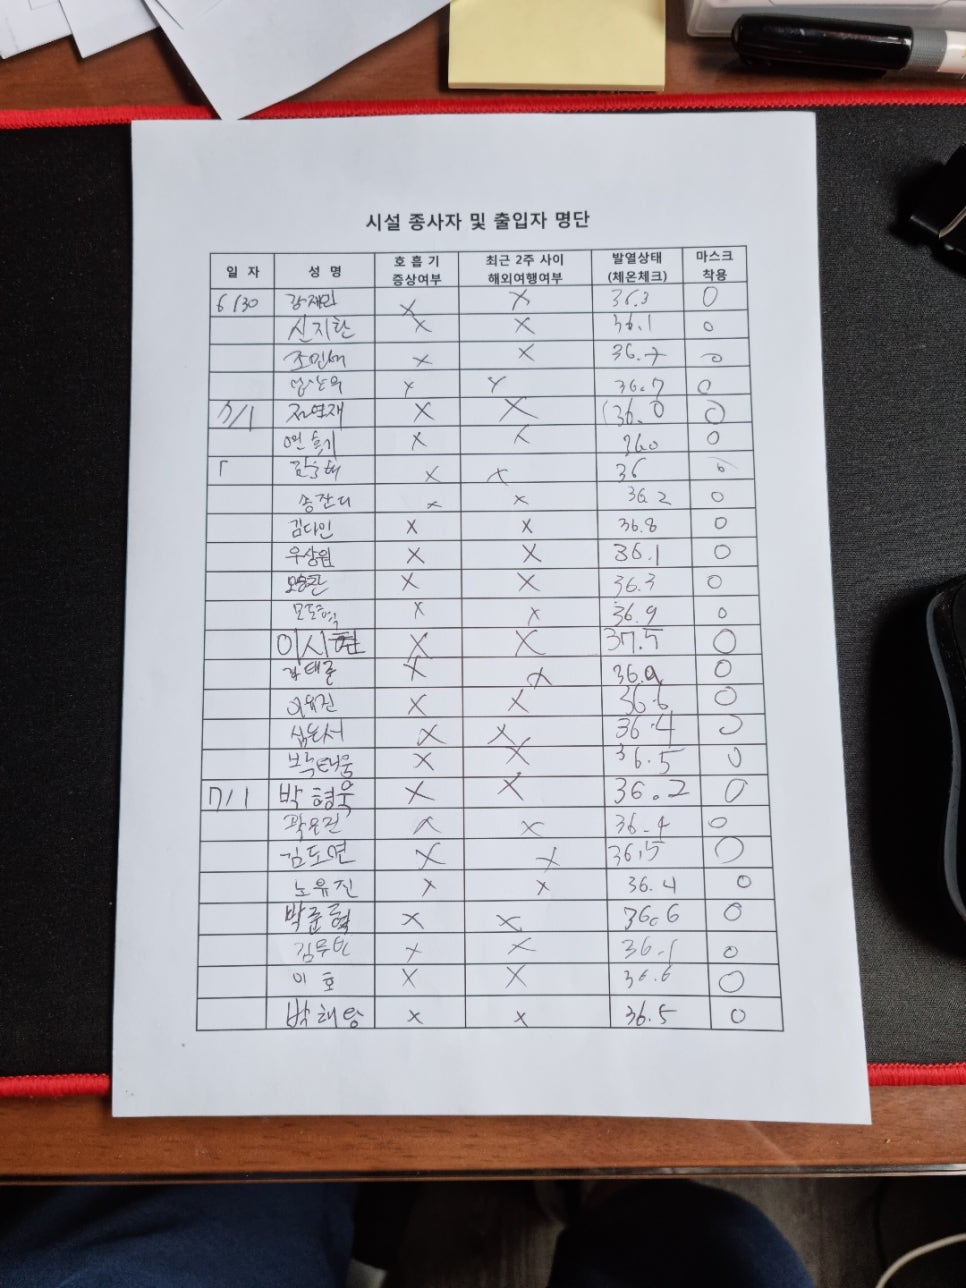 시설 종사자 및 출입자 명단
일 자 성 명 호 흡 기 증상여부 최근 2주 사이 해외여행여부 발열상태 (체온체크) 마스크 착용
6/30 강재민 X X 36.3 O
신지환 X X 36.1 O
조민새 X X 36.7 O
X X 36.7 O
7/1 X X 36.0 O
X X 36.0 O
X X 36 O
송잔디 X X 36.2 O
김다인 X X 36.8 O
우상원 X X 36.1 O
X X 36.3 O
X X 36.9 O
이시환 X X 37.5 O
X X 36.9 O
X X 36.6 O
심은서 X X 36.4 O
X X 36.5 O
7/1 박형욱 X X 36.2 O
곽유진 X X 36.4 O
김도연 X X 36.5 O
노유진 X X 36.4 O
박준혁 X X 36.6 O
X X 36.1 O
이호 X X 36.6 O
X X 36.5 O